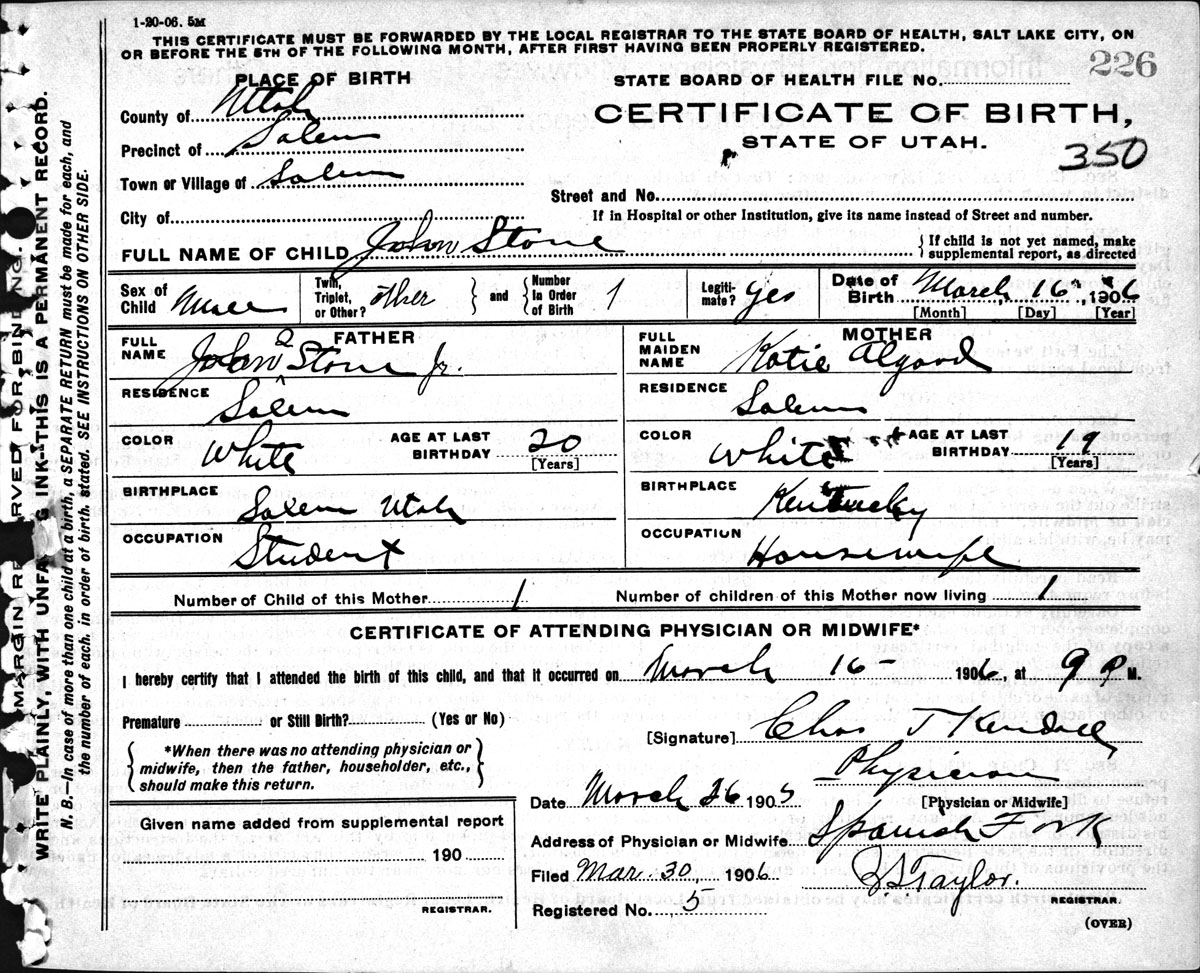 1-20-06. 5M
THIS CERTIFICATE MUST BE FORWARDED BY THE LOCAL REGISTRAR TO THE STATE BOARD OF HEALTH, SALT LAKE CITY, ON
OR BEFORE THE 5TH OF THE FOLLOWING MONTH, AFTER FIRST HAVING BEEN PROPERLY REGISTERED.
226
PLACE OF BIRTH
STATE BOARD OF HEALTH FILE No.
County of Utah
CERTIFICATE OF BIRTH,
Precinct of Salem
STATE OF UTAH.
350
Town or Village of Salem
Street and No.
City of
If in Hospital or other Institution, give its name instead of Street and number.
FULL NAME OF CHILD John Stone
{ If child is not yet named, make
supplemental report, as directed
Sex of Child Male
Twin, Triplet, or Other? other } and { Number in Order of Birth 1
Legitimate? yes
Date of Birth March 16, 1906
[Month] [Day] [Year]
FATHER
FULL NAME John Stone Jr.
RESIDENCE Salem
COLOR White AGE AT LAST BIRTHDAY 20
[Years]
BIRTHPLACE Salem Utah
OCCUPATION Student
MOTHER
FULL MAIDEN NAME Katie Algood
RESIDENCE Salem
COLOR White AGE AT LAST BIRTHDAY 19
[Years]
BIRTHPLACE Kentucky
OCCUPATION Housewife
Number of Child of this Mother 1 Number of children of this Mother now living 1
CERTIFICATE OF ATTENDING PHYSICIAN OR MIDWIFE*
I hereby certify that I attended the birth of this child, and that it occurred on March 16- 1906, at 9 P M.
Premature or Still Birth? (Yes or No)
[Signature] Chas T Kendall
{ *When there was no attending physician or
midwife, then the father, householder, etc.,
should make this return. }
Physician
Date March 26 1905 [Physician or Midwife]
Given name added from supplemental report
190
REGISTRAR.
Address of Physician or Midwife Spanish Fork
Filed Mar. 30, 1906 Taylor.
REGISTRAR.
Registered No. 5
(OVER)
MARGIN RESERVED FOR BINDING.
WRITE PLAINLY, WITH UNFADING INK—THIS IS A PERMANENT RECORD.
N. B.—In case of more than one child at a birth, a SEPARATE RETURN must be made for each, and
the number of each, in order of birth, stated. SEE INSTRUCTIONS ON OTHER SIDE.